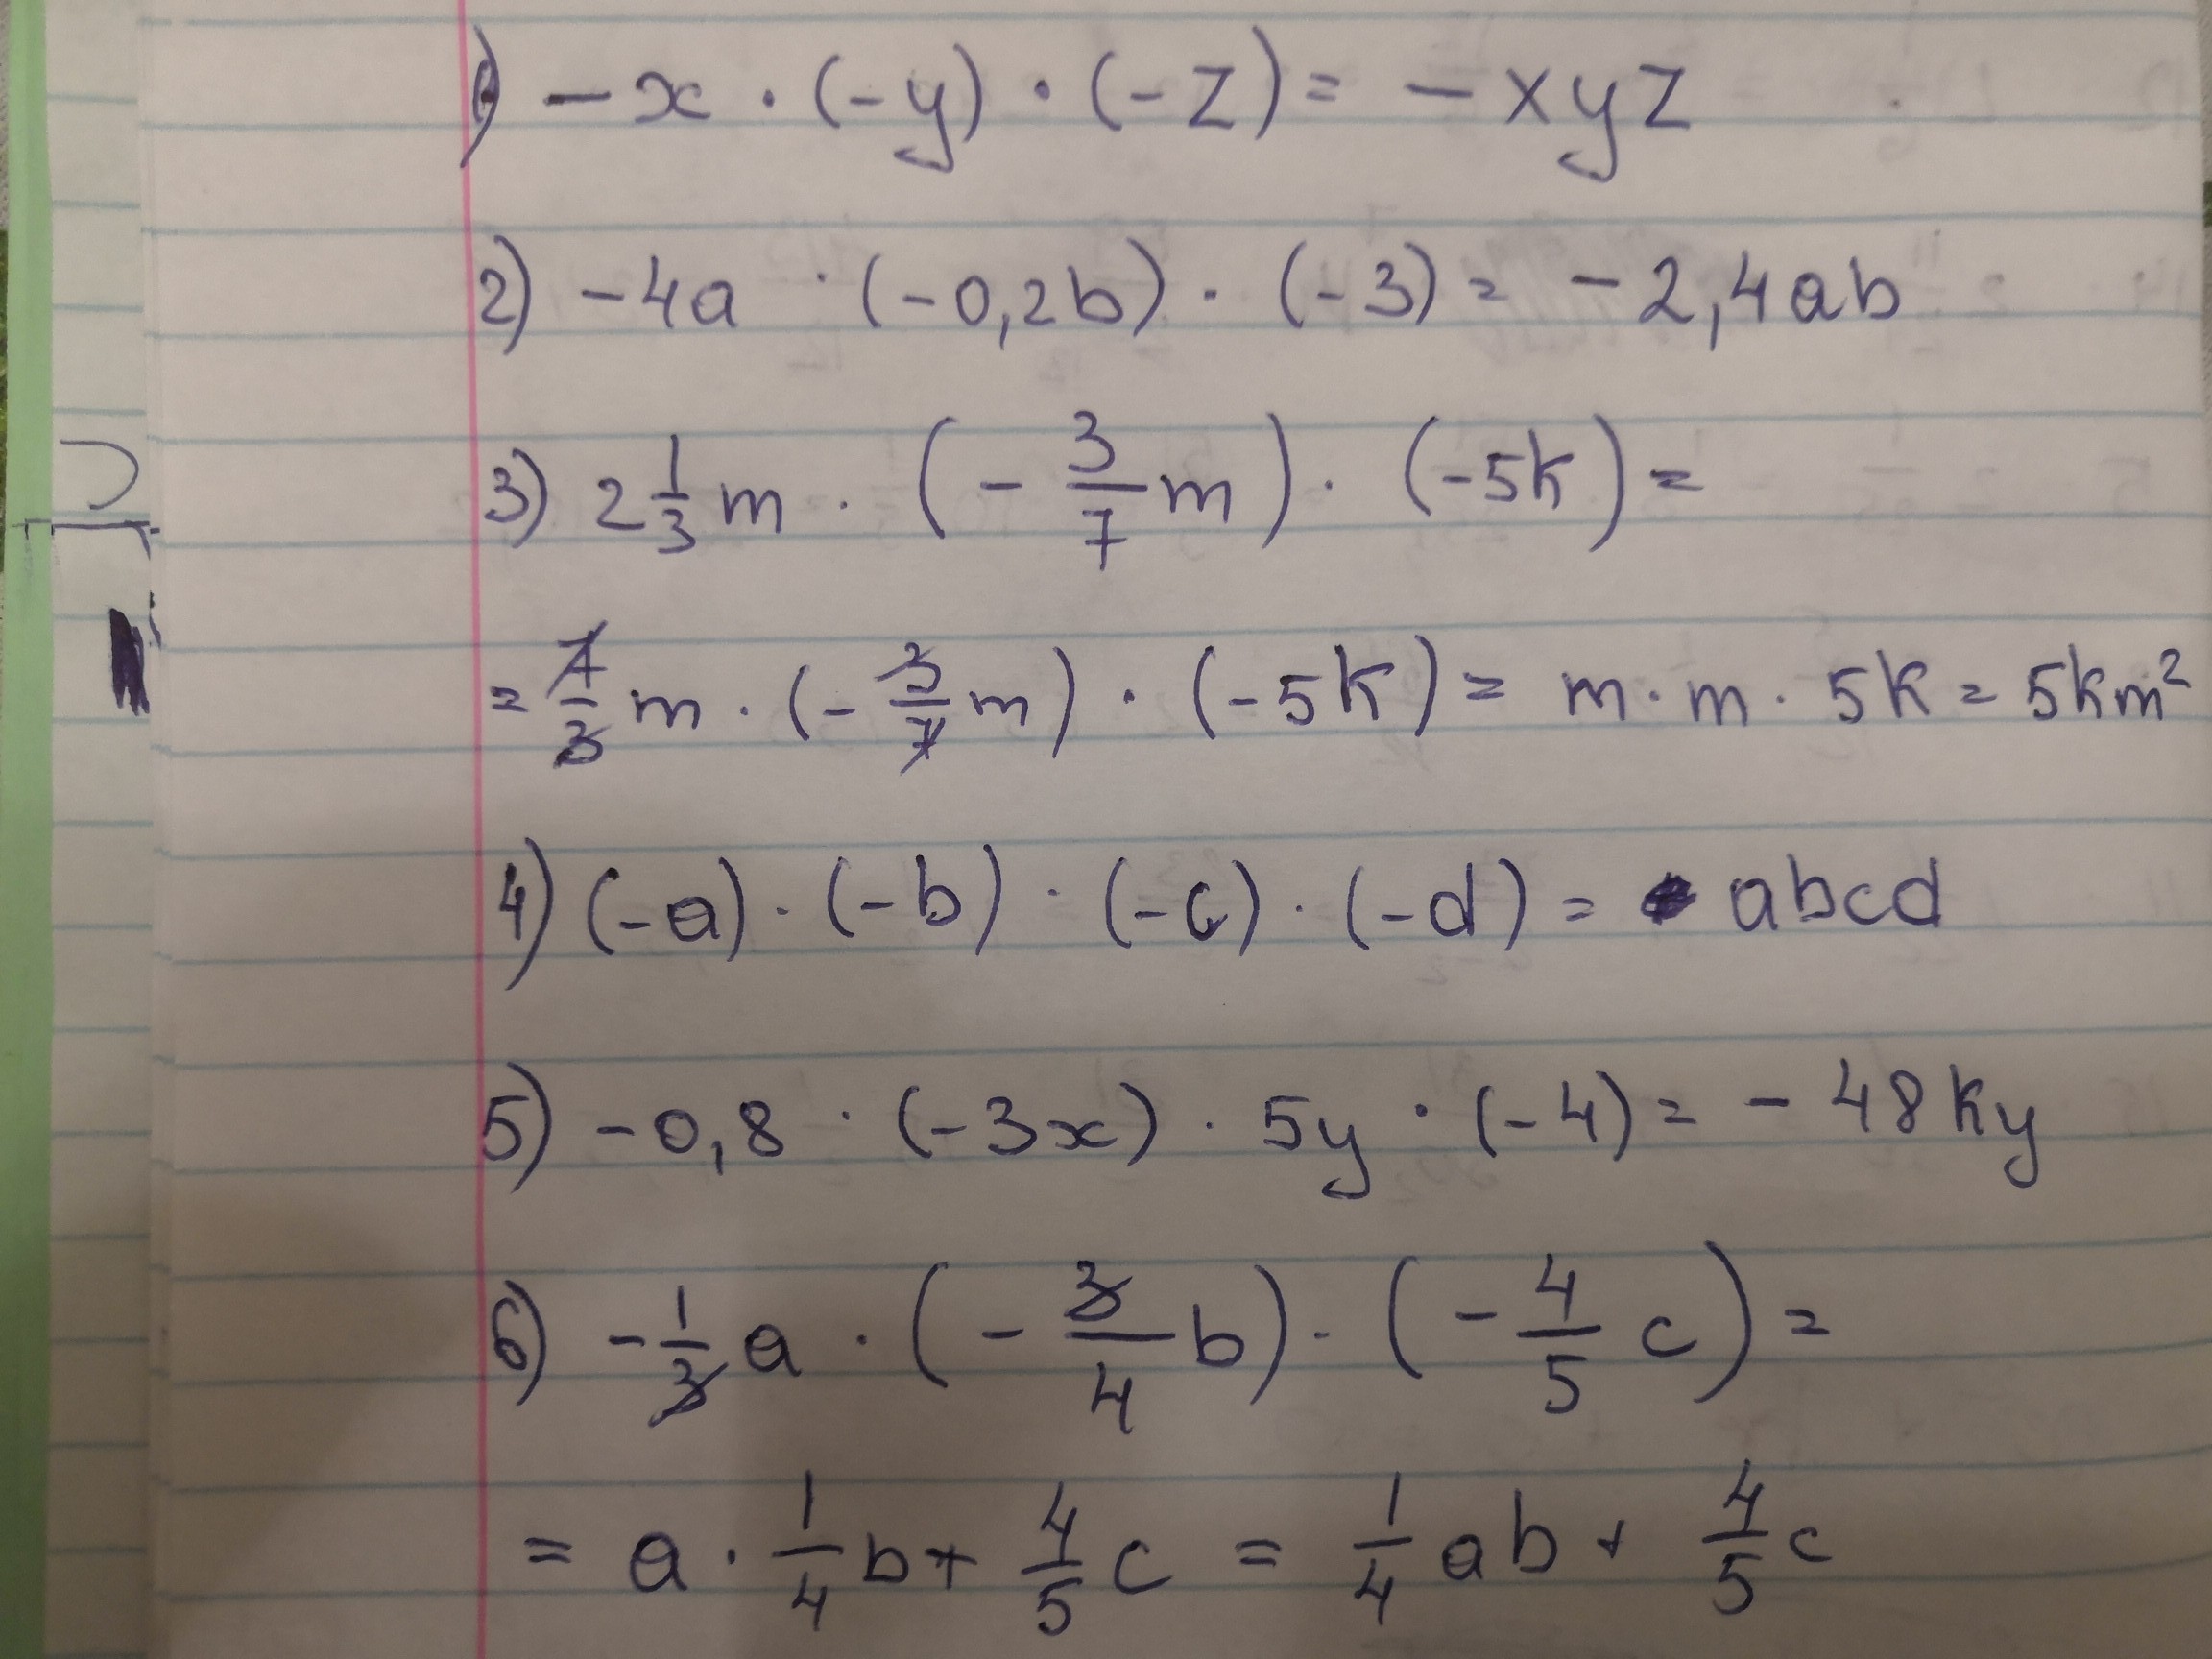 1) - x · (-y) · (-z) = - xyz
2) - 4a · (-0,2b) · (-3) = - 2,4ab
3) 2 1/3 m · (- 3/7 m) · (-5k) =
= 7/3 m · (- 3/7 m) · (-5k) = m · m · 5k = 5km²
4) (-a) · (-b) · (-c) · (-d) = abcd
5) - 0,8 · (-3x) · 5y · (-4) = - 48ky
6) - 1/3 a · (- 3/4 b) · (- 4/5 c) =
= a · 1/4 b + 4/5 c = 1/4 ab + 4/5 c